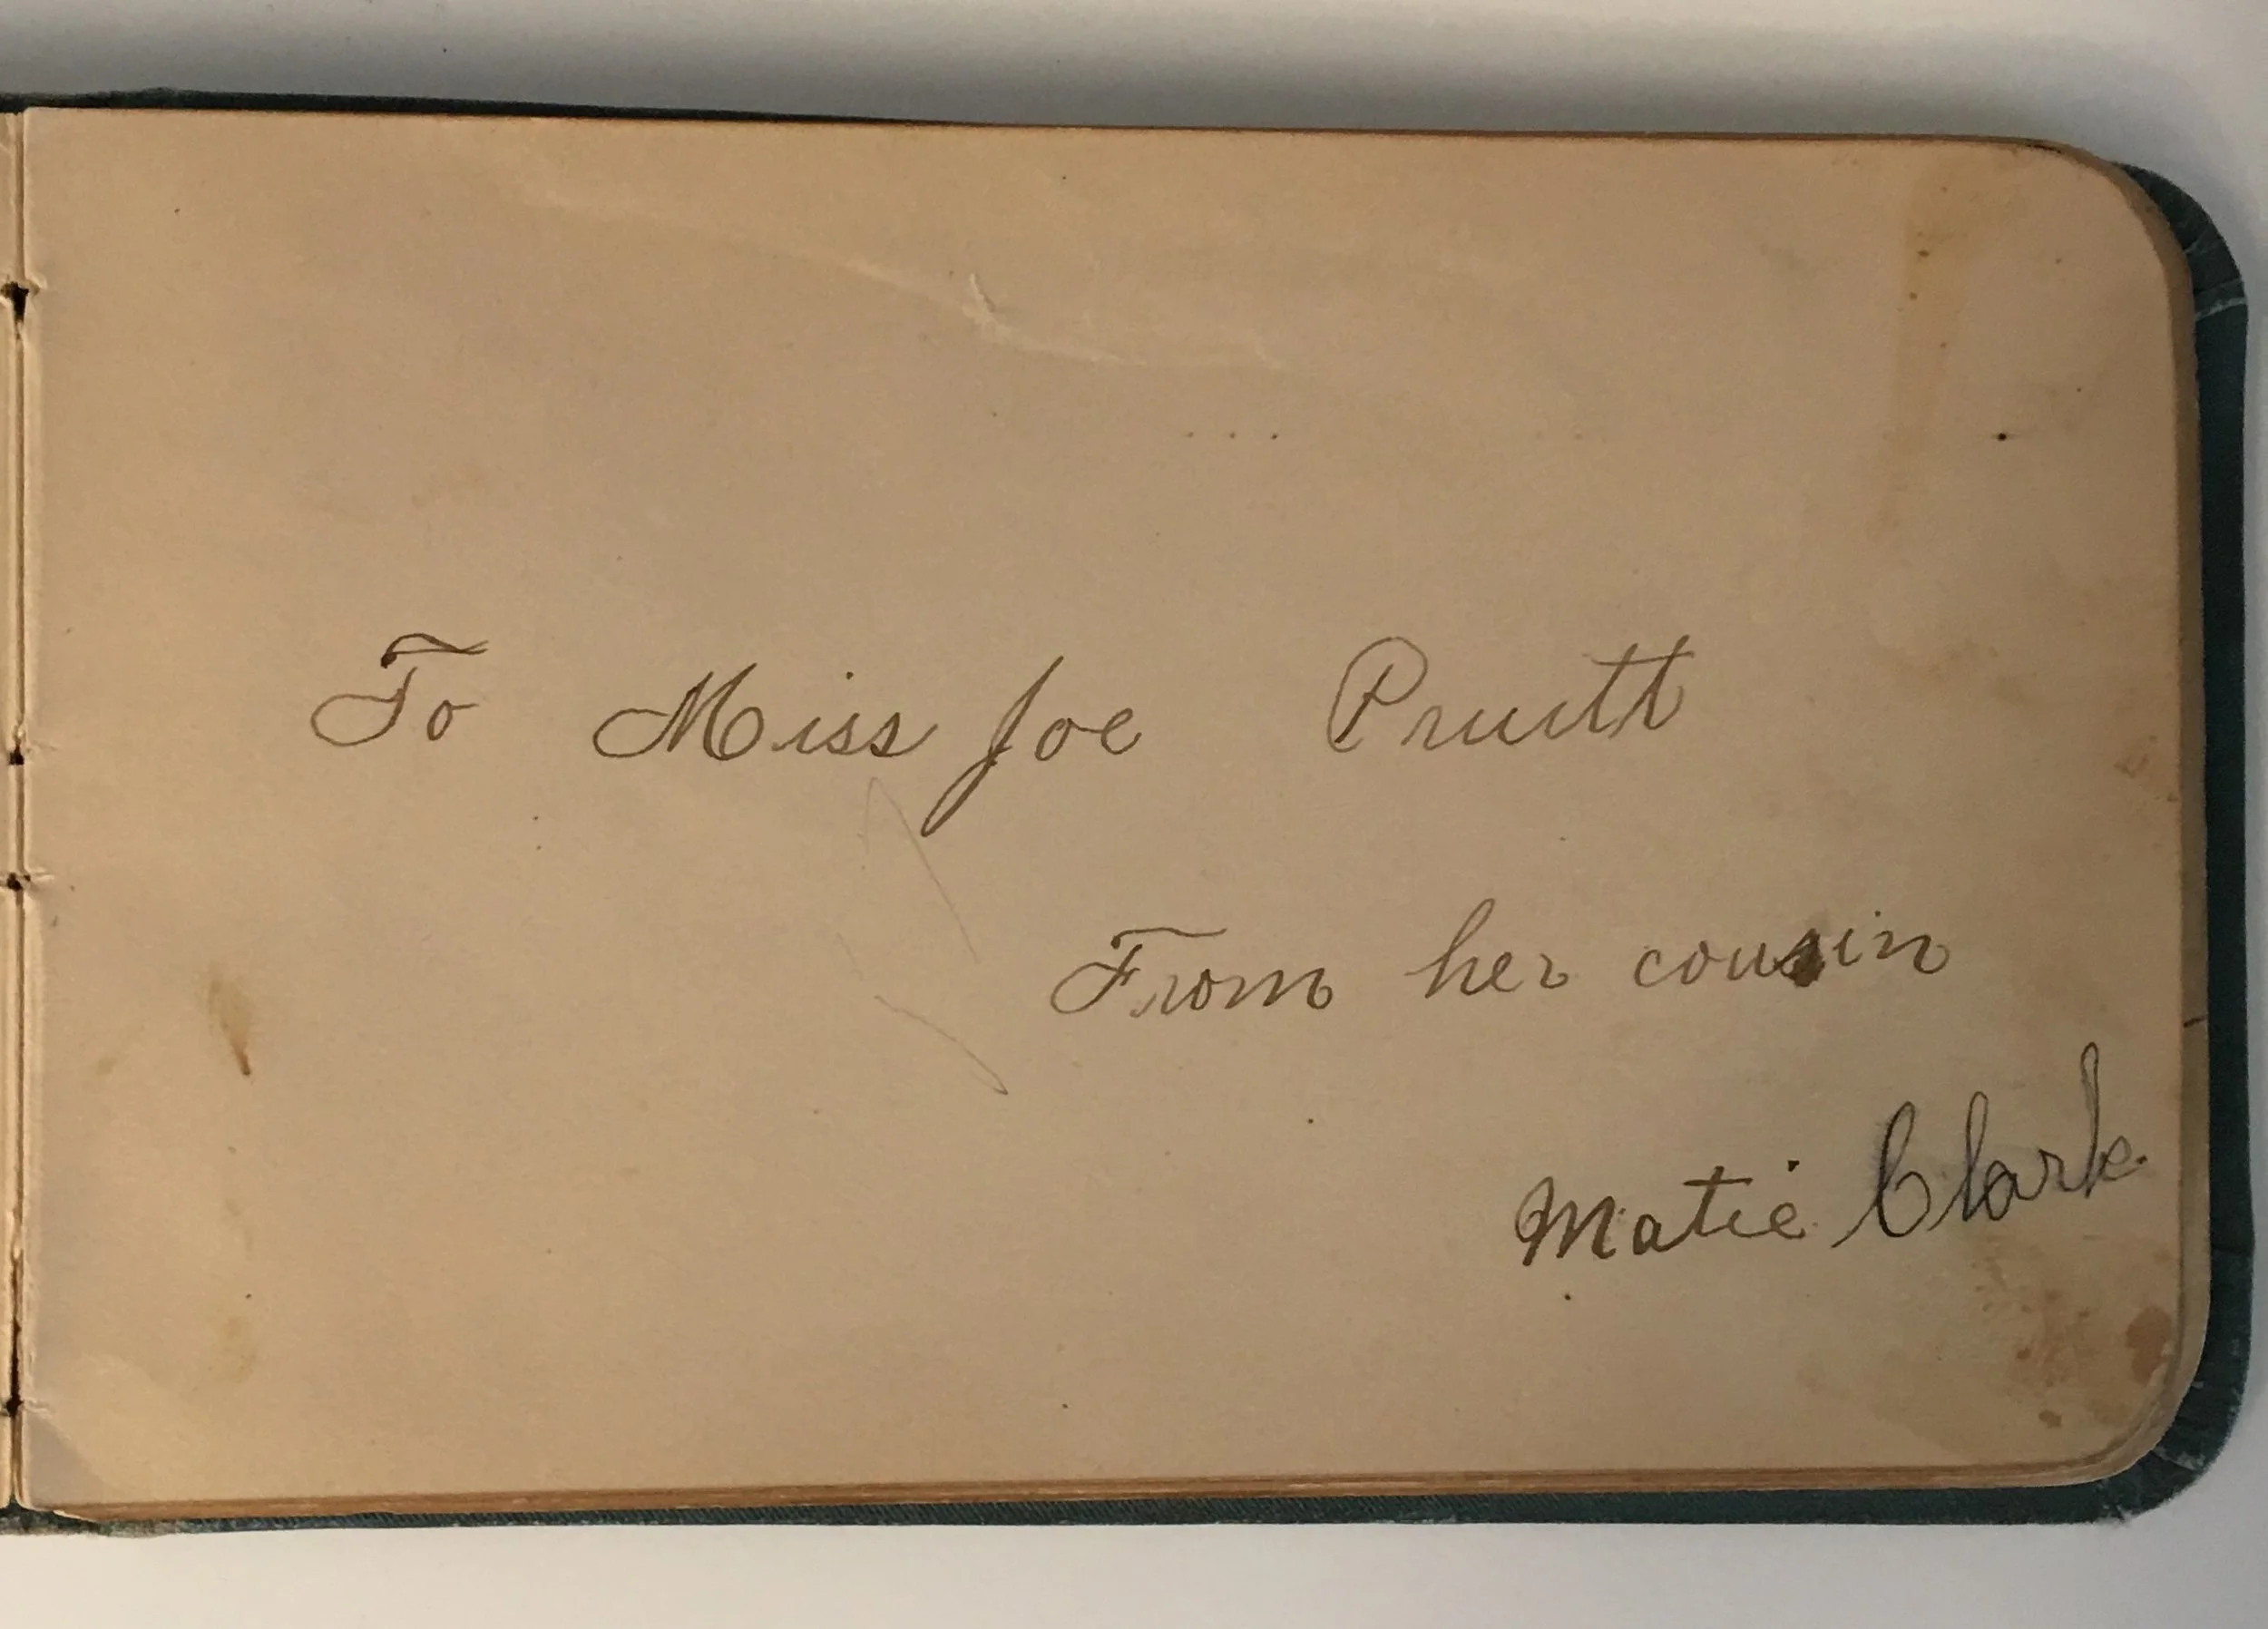 To Miss Joe Pruitt
From her cousin
Matie Clark.